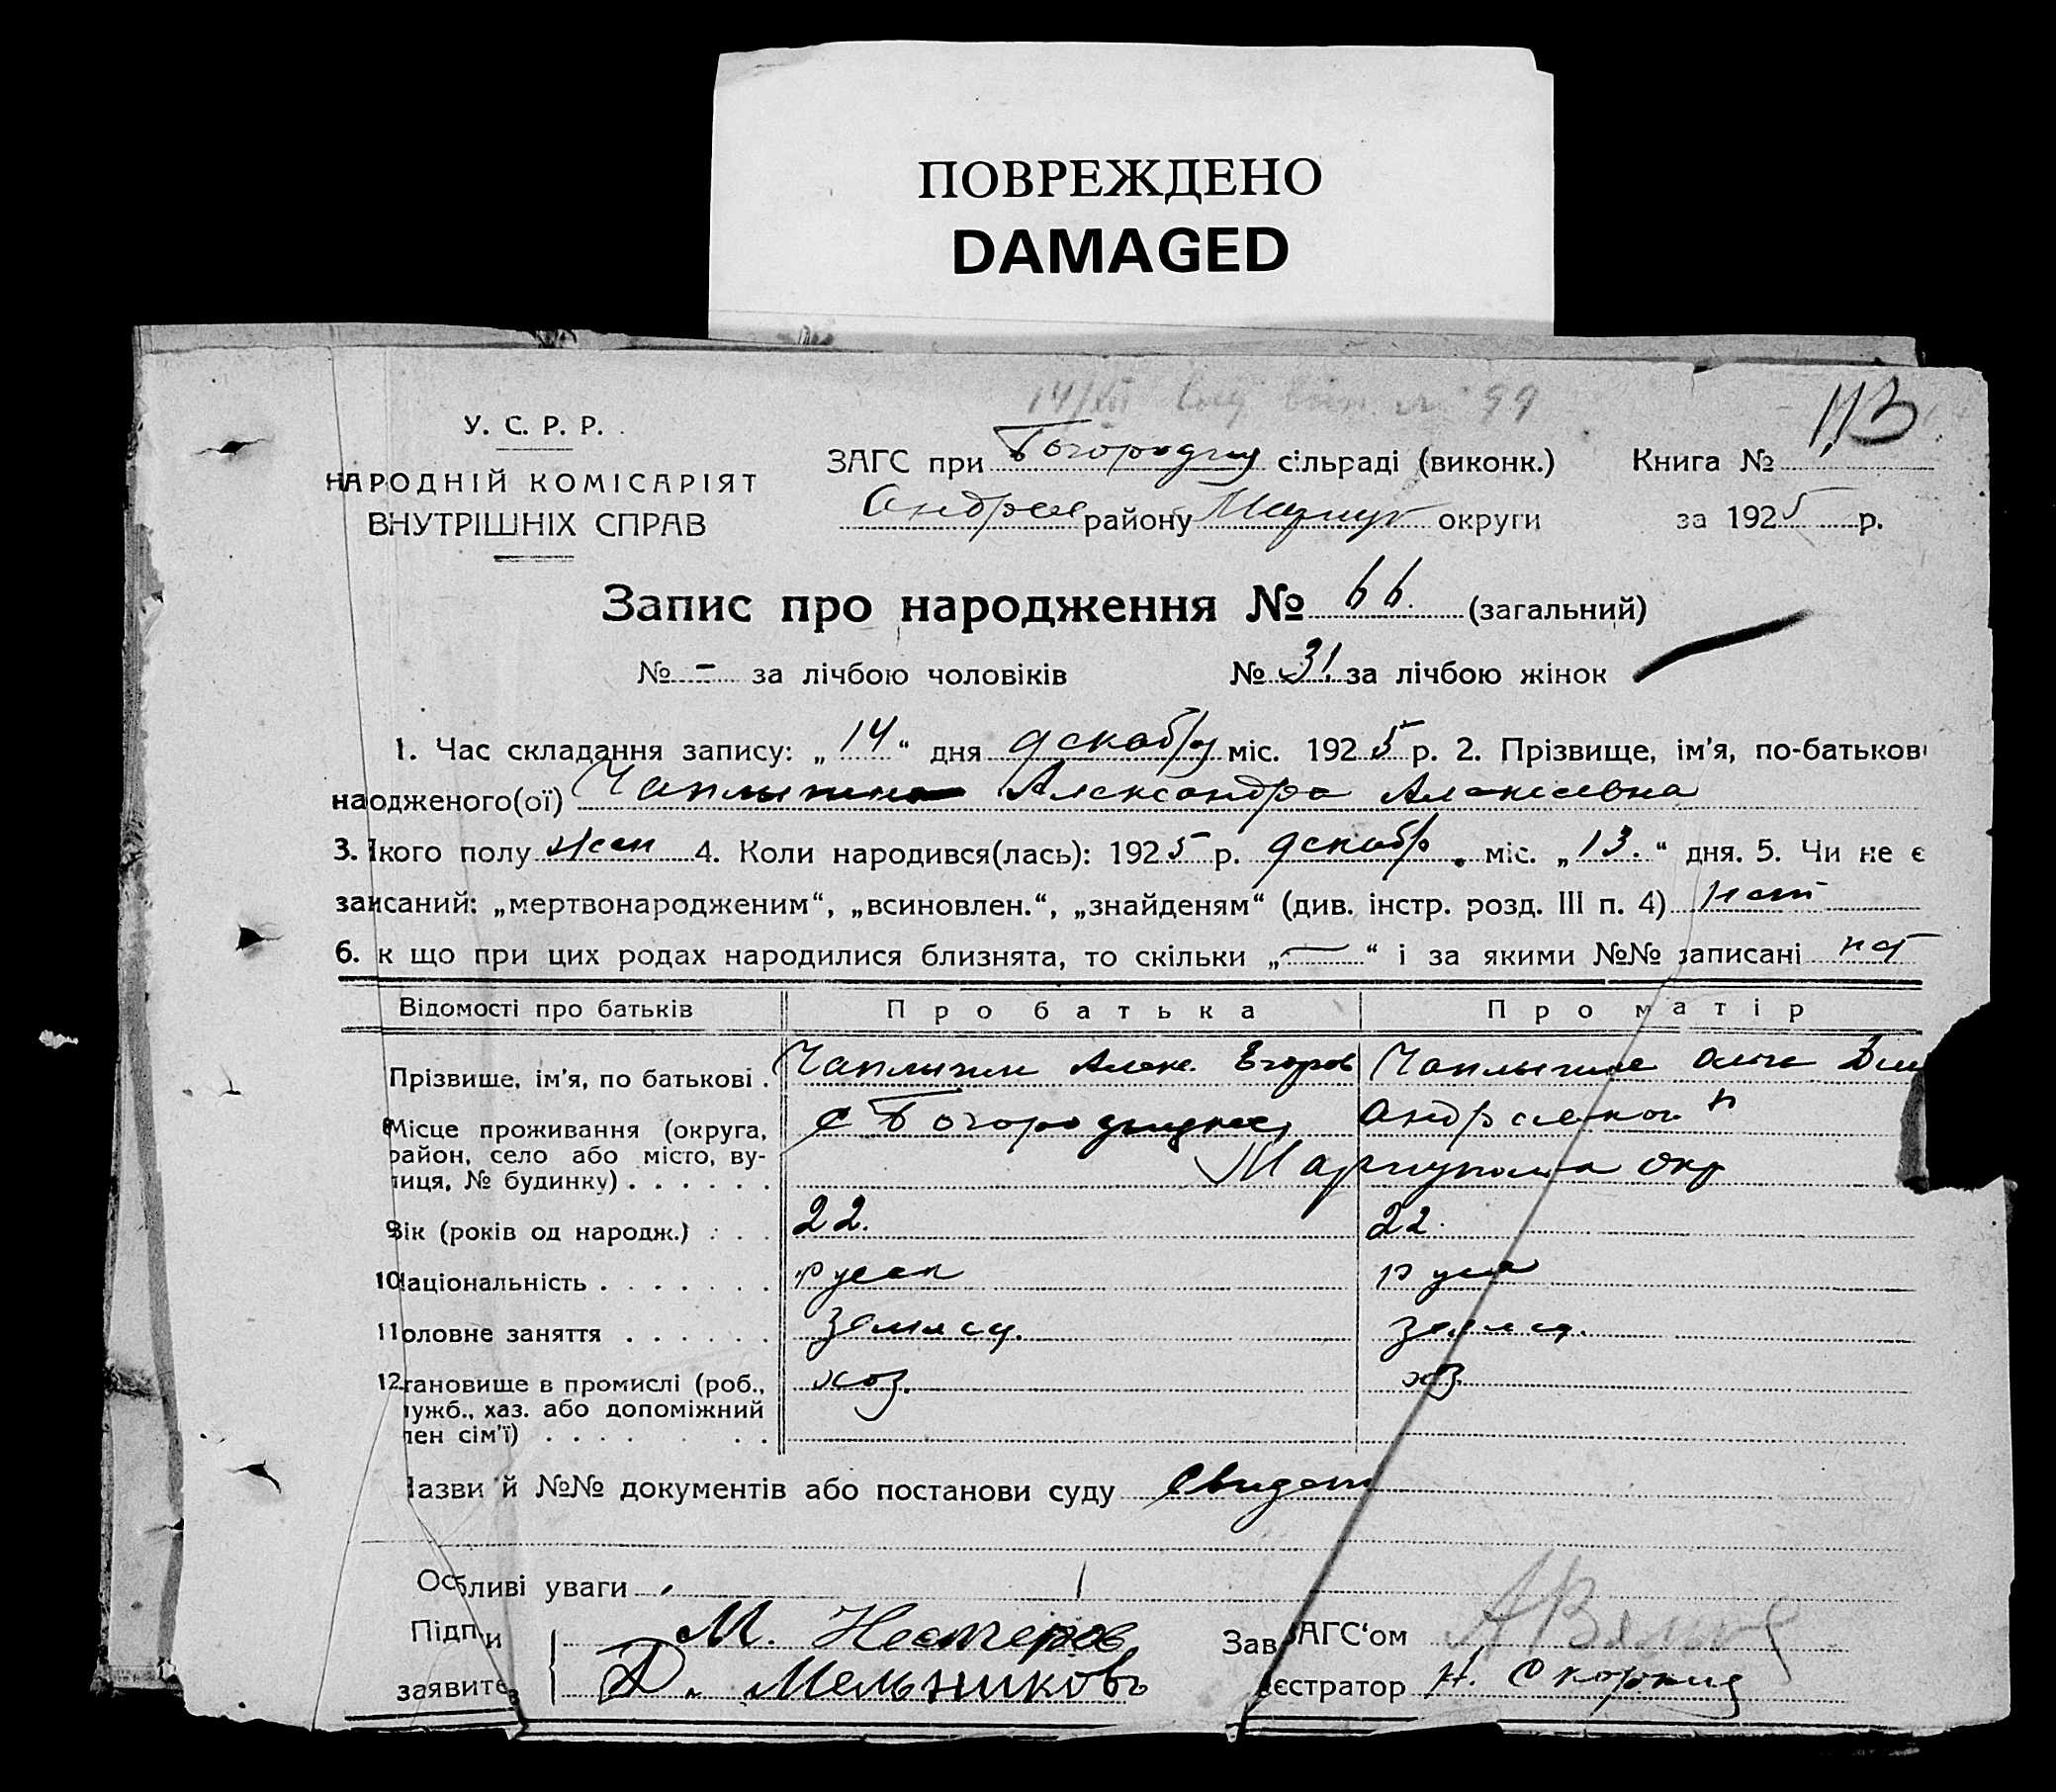 ПОВРЕЖДЕНО
DAMAGED
113
У. С. Р. Р.
НАРОДНІЙ КОМІСАРІЯТ
ВНУТРІШНІХ СПРАВ
ЗАГС при Богородиц сільраді (виконк.) Книга №
Андреев району Мариуп округи за 1925 р.
Запис про народження № 66. (загальний)
№ - за лічбою чоловіків № 31. за лічбою жінок
1. Час складання запису: „14“ дня декабря міс. 1925 р. 2. Прізвище, ім'я, по-батькові
наодженого(ої) Чаплыгина Александра Алексеевна
3. Якого полу жен 4. Коли народився(лась): 1925 р. декабр. міс. „13.“ дня. 5. Чи не є
заисаний: „мертвонародженим“, „всиновлен.“, „знайденям“ (див. інстр. розд. III п. 4) нет
6. к що при цих родах народилися близнята, то скільки „—“ і за якими №№ записані нет
Відомості про батьків Про батька Про матір
Прізвище, ім'я, по батькові . Чаплыгин Алекс. Егоров Чаплыгина Дми
8 Місце проживання (округа, с Богородицкое, Андреевкой
район, село або місто, ву- Мариупольск окр
лиця, № будинку) . . . . . .
9 Вік (років од народж.) . . . 22. 22.
10 Національність . . . . . . . русск русск
11 оловне заняття . . . . . . землед. землед.
12 тановище в промислі (роб., хоз. хоз
лужб., хаз. або допоміжний
лен сім'ї) . . . . . .
Назви й №№ документів або постанови суду Свидет
Особливі уваги
Підпи М. Нестеров Зав ЗАГС‘ом
заявите Д. Мельниковъ еєстратор Н.